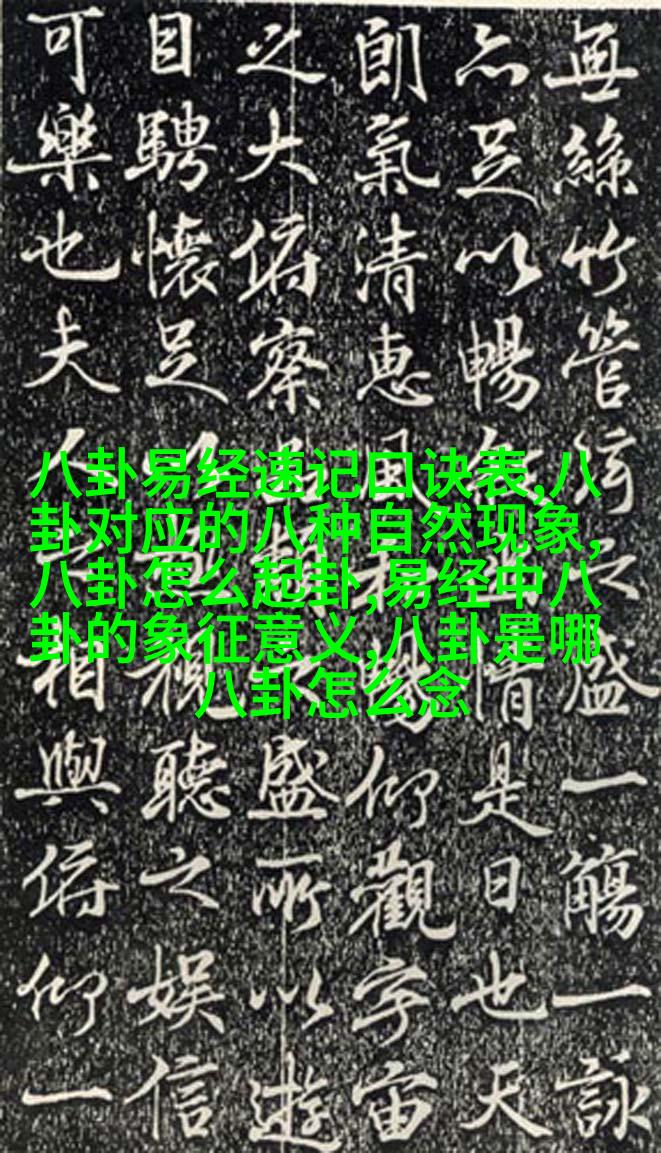 無絲竹管絃之盛一觴一詠
亦足以暢情是日也天
朗氣清惠風和暢仰觀宇宙
之大俯察盛所以遊
目騁懷足視聽之娛信
可樂也夫人之相與俯仰一
八卦易经速记口诀表,八
卦对应的八种自然现象,
八卦怎么起卦,易经中八
卦的象征意义,八卦是哪
八卦怎么念